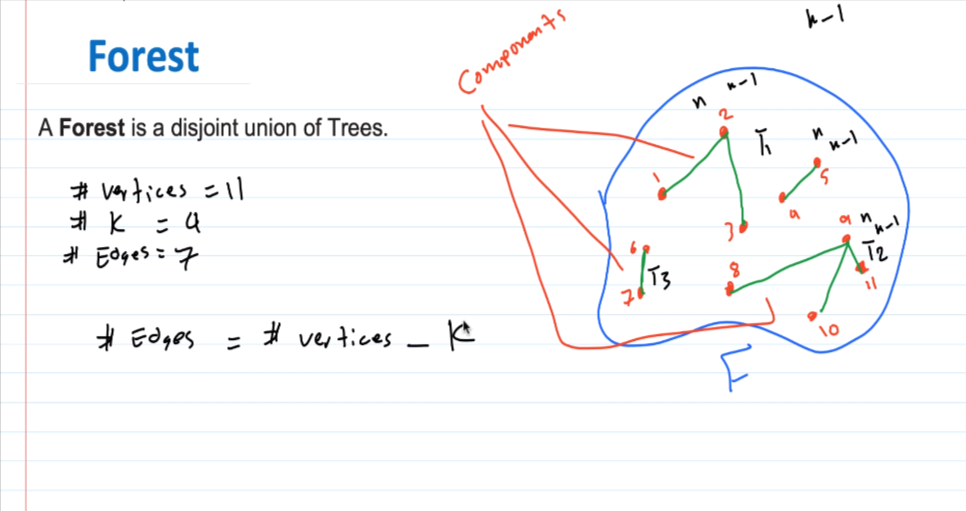 Forest
A Forest is a disjoint union of Trees.
# vertices = 11
# K = 4
# Edges = 7
# Edges = # vertices - K
Components
n-1
n n-1
2
T1
n n-1
1
5
4
3
9 n n-1
6
T2
8
11
7 T3
10
F